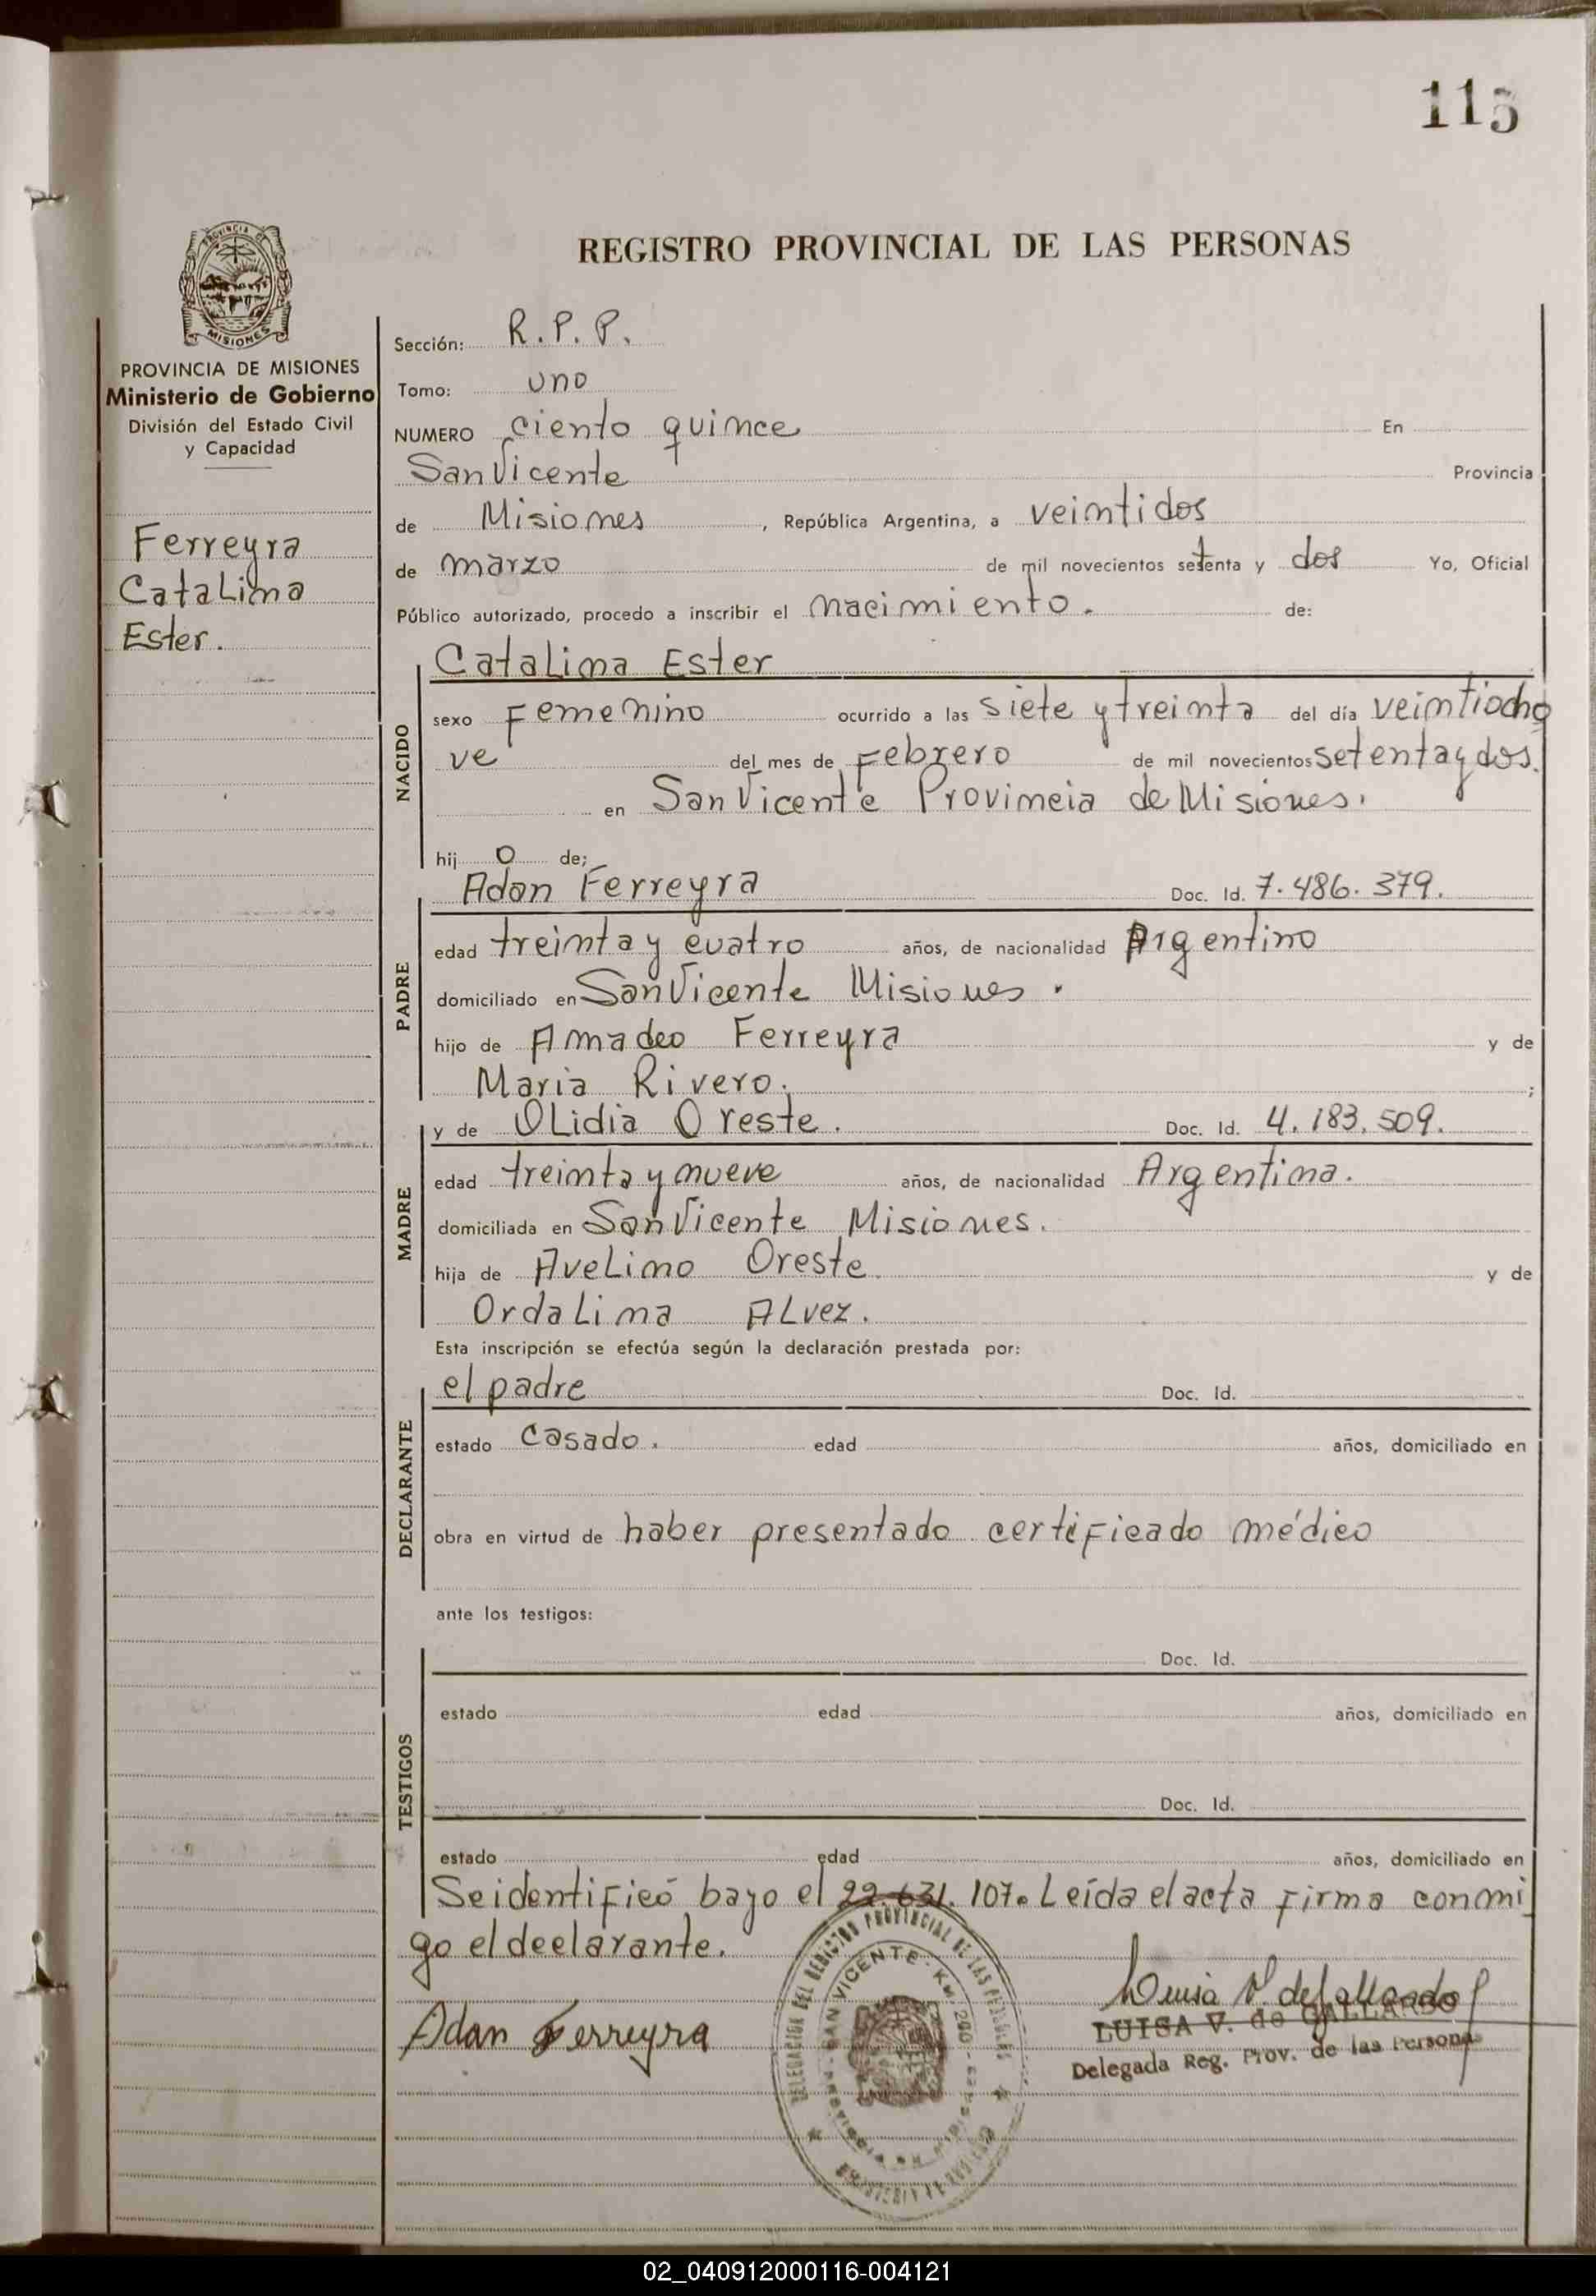 115
REGISTRO PROVINCIAL DE LAS PERSONAS
PROVINCIA DE MISIONES
Ministerio de Gobierno
División del Estado Civil
y Capacidad
Ferreyra
Catalina
Ester.
Sección: R.P.P.
Tomo: uno
NUMERO ciento quince En
San Vicente Provincia
de Misiones, República Argentina, a veintidos
de marzo de mil novecientos setenta y dos Yo, Oficial
Público autorizado, procedo a inscribir el nacimiento. de:
Catalina Ester
NACIDO
sexo Femenino ocurrido a las siete y treinta del día veintiocho
ve del mes de Febrero de mil novecientos setenta y dos.
en San Vicente Provincia de Misiones.
hij o de;
Adan Ferreyra Doc. Id. 7.486.379.
PADRE
edad treinta y cuatro años, de nacionalidad Argentino
domiciliado en San Vicente Misiones.
hijo de Amadeo Ferreyra y de
Maria Rivero. ;
y de OLidia Oreste. Doc. Id. 4.183.509.
MADRE
edad treinta y nueve años, de nacionalidad Argentina.
domiciliada en San Vicente Misiones.
hija de Avelino Oreste y de
Ordalina Alvez.
Esta inscripción se efectúa según la declaración prestada por:
el padre Doc. Id.
DECLARANTE
estado Casado. edad años, domiciliado en
obra en virtud de haber presentado certificado médico
ante los testigos:
Doc. Id.
TESTIGOS
estado edad años, domiciliado en
Doc. Id.
estado edad años, domiciliado en
Se identificó bajo el 22.631.107. Leída el acta firma conmi
go el declarante.
Adan Ferreyra
Luisa V. de Gallardo
LUISA V. de GALLARDO
Delegada Reg. Prov. de las Personas
DELEGACIÓN DEL REGISTRO PROVINCIAL DE LAS PERSONAS
SAN VICENTE - KM. 260
02_040912000116-004121